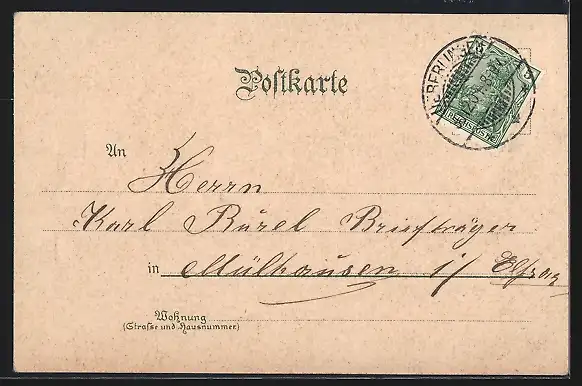 Postkarte
ÜBERLINGEN
An
Herrn
Karl Bürel Briefträger
in Mülhausen i/ Elsaß
Wohnung
(Strasse und Hausnummer)